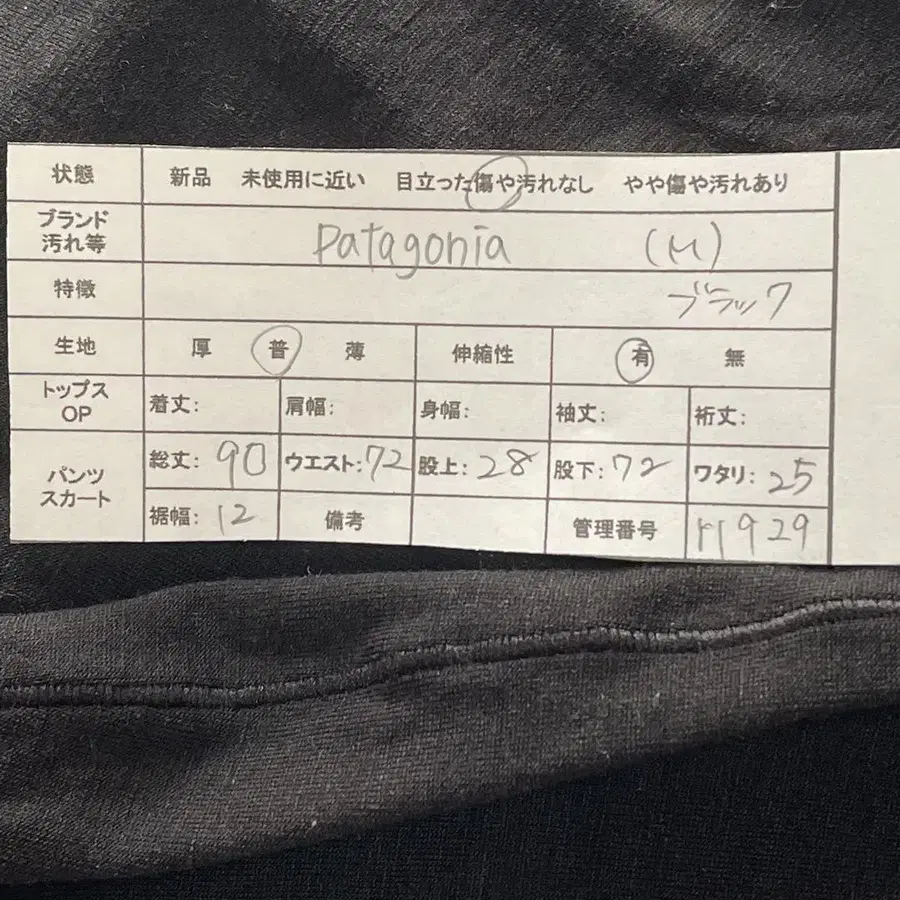 状態 新品 未使用に近い 目立った傷や汚れなし やや傷や汚れあり
ブランド
汚れ等 Patagonia (M)
特徴 ブラック
生地 厚 普 薄 伸縮性 有 無
トップス
OP 着丈: 肩幅: 身幅: 袖丈: 裄丈:
パンツ
スカート 総丈: 90 ウエスト: 72 股上: 28 股下: 72 ワタリ: 25
裾幅: 12 備考 管理番号 H1929